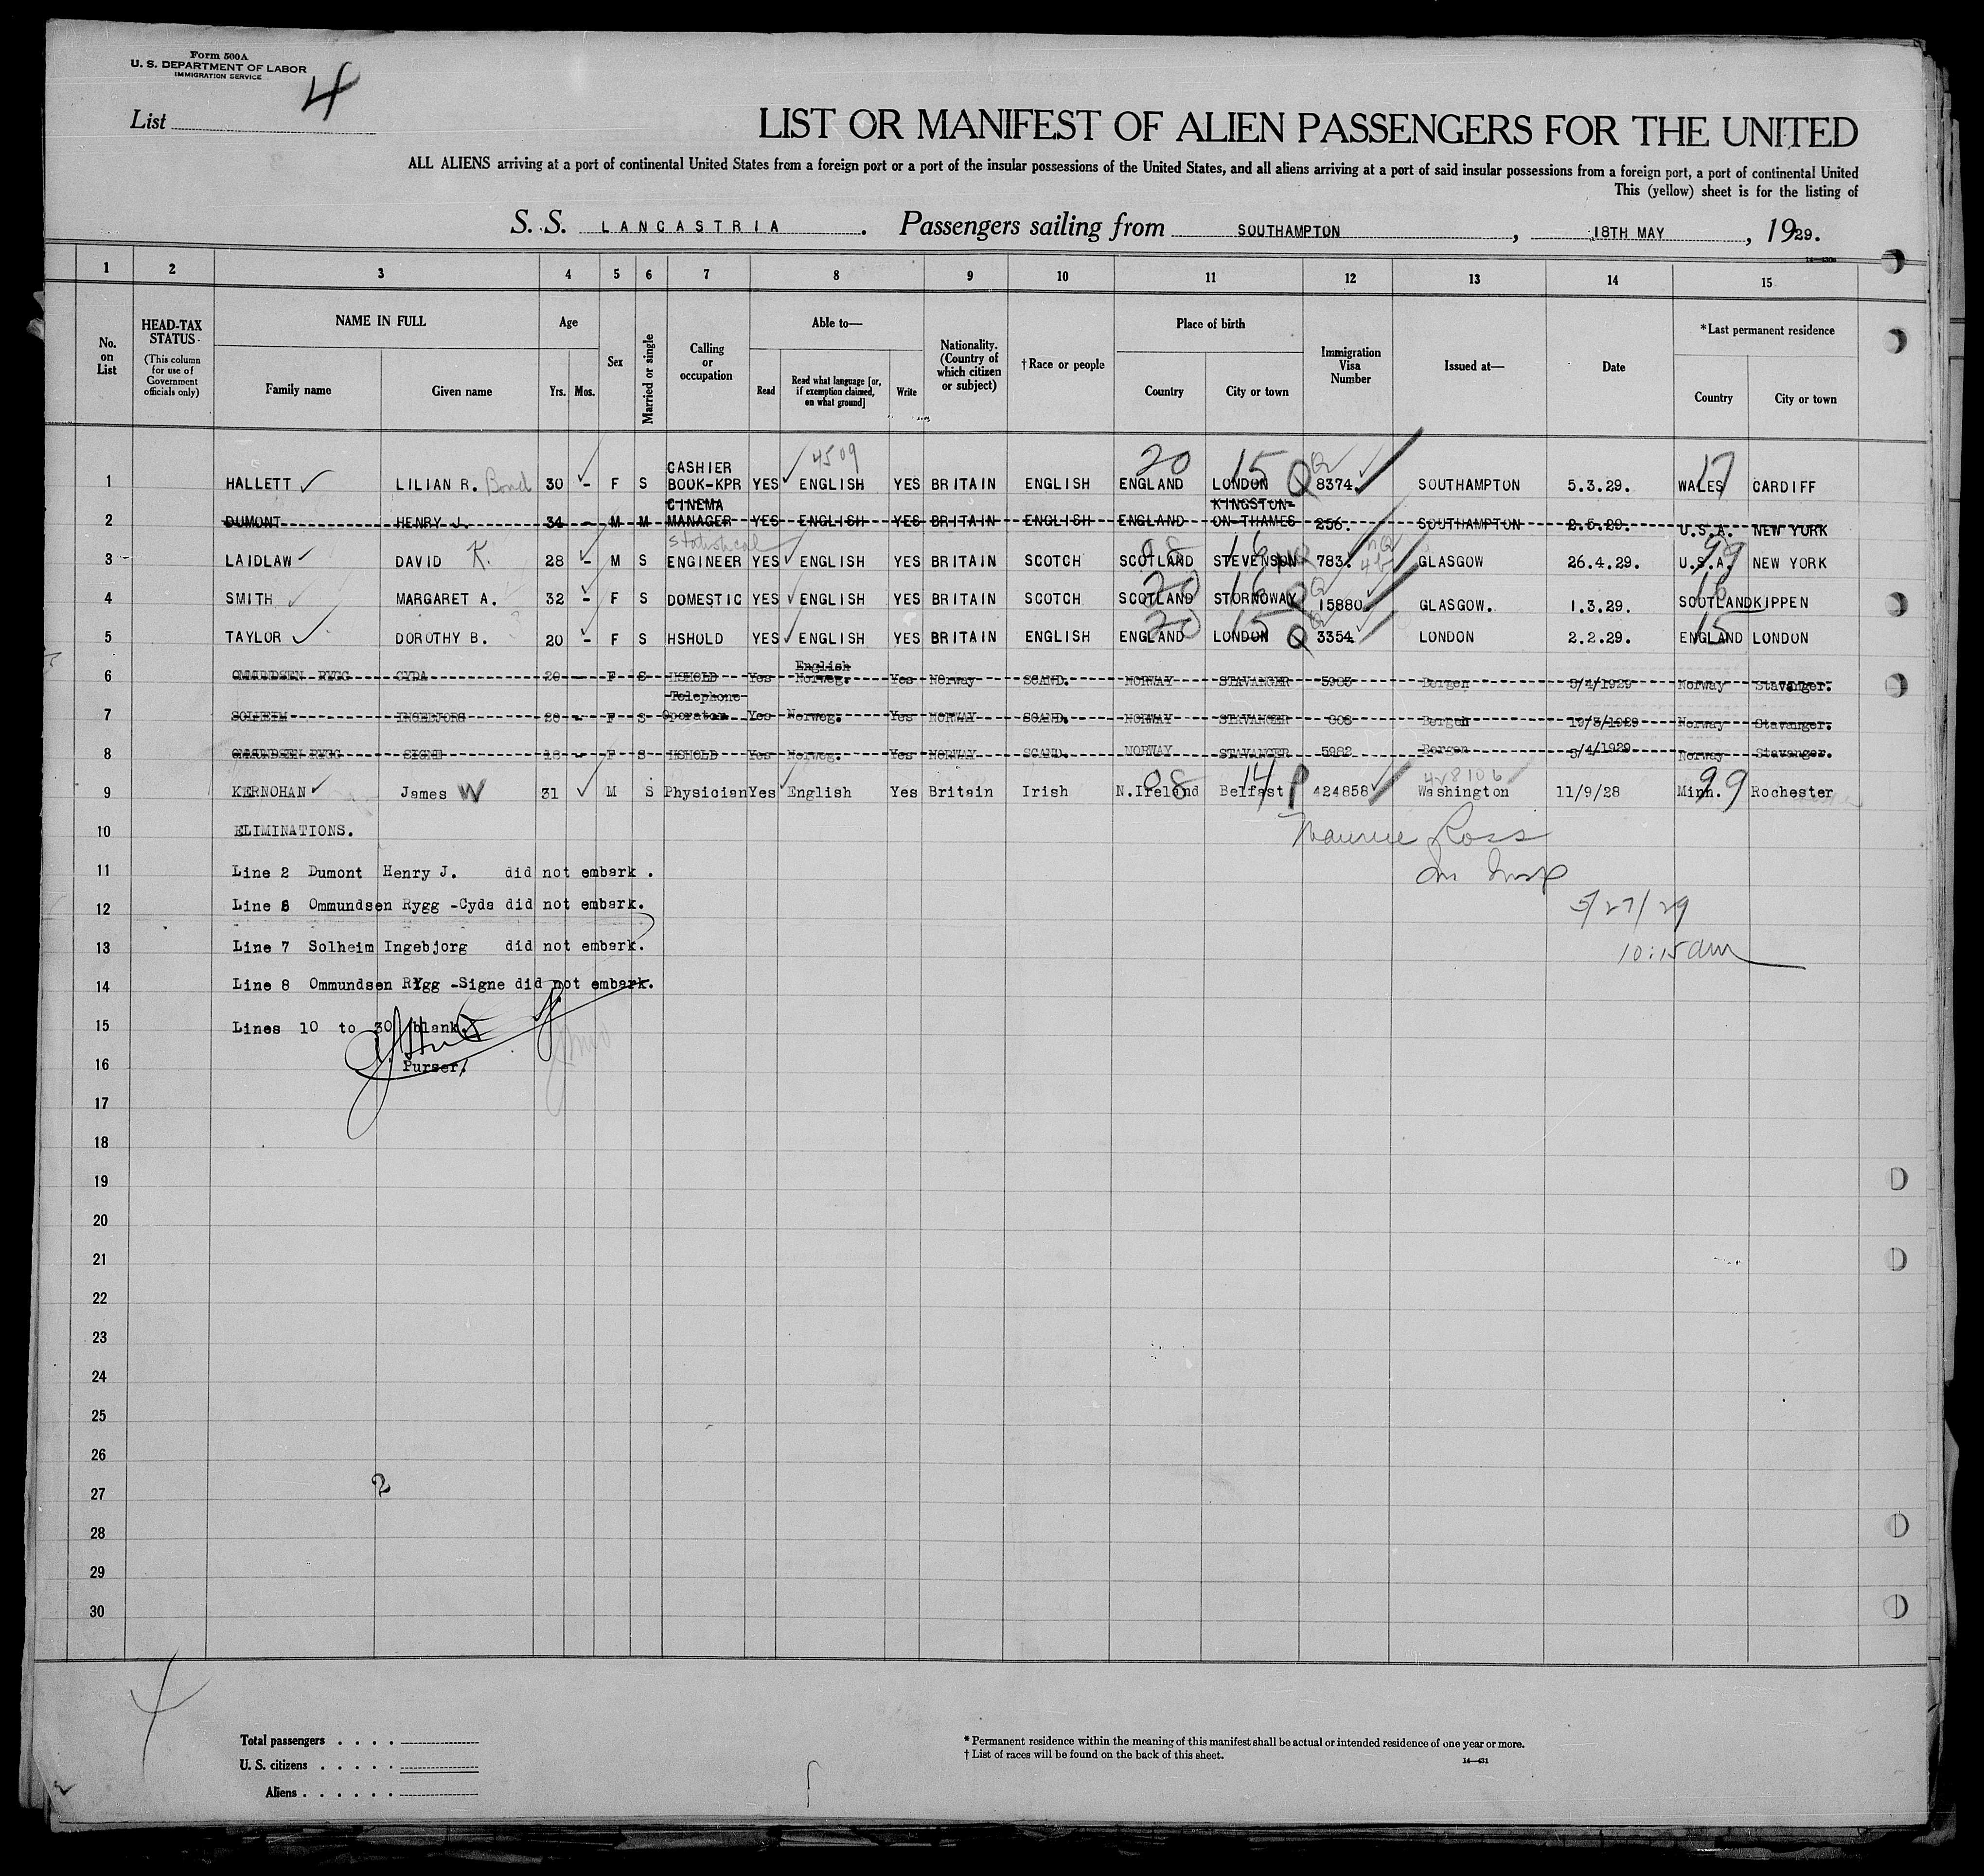 Form 500A
U. S. DEPARTMENT OF LABOR
IMMIGRATION SERVICE
4
List
LIST OR MANIFEST OF ALIEN PASSENGERS FOR THE UNITED
ALL ALIENS arriving at a port of continental United States from a foreign port or a port of the insular possessions of the United States, and all aliens arriving at a port of said insular possessions from a foreign port, a port of continental United
This (yellow) sheet is for the listing of
S. S. LANCASTRIA. Passengers sailing from SOUTHAMPTON, 18TH MAY, 1929.
1 2 3 4 5 6 7 8 9 10 11 12 13 14 15
No. on List
HEAD-TAX STATUS (This column for use of Government officials only)
NAME IN FULL Family name Given name
Age Yrs. Mos.
Sex
Married or single
Calling or occupation
Able to— Read Read what language [or, if exemption claimed, on what ground] Write
Nationality. (Country of which citizen or subject)
†Race or people
Place of birth Country City or town
Immigration Visa Number
Issued at—
Date
*Last permanent residence Country City or town
4509 20 15 17
1 HALLETT LILIAN R. Bond 30 - F S CASHIER BOOK-KPR YES ENGLISH YES BRITAIN ENGLISH ENGLAND LONDON Q 8374. SOUTHAMPTON 5.3.29. WALES CARDIFF
2 DUMONT HENRY J. 34 - M M CINEMA MANAGER YES ENGLISH YES BRITAIN ENGLISH ENGLAND KINGSTON-ON-THAMES 256. SOUTHAMPTON 2.5.29. U.S.A. NEW YORK
3 LAIDLAW DAVID K. 28 - M S Statistical ENGINEER YES ENGLISH YES BRITAIN SCOTCH SCOTLAND STEVENSON 783. GLASGOW 26.4.29. U.S.A. 99 NEW YORK
4 SMITH MARGARET A. 32 - F S DOMESTIC YES ENGLISH YES BRITAIN SCOTCH SCOTLAND 20 STORNOWAY 16 15880 GLASGOW. 1.3.29. SCOTLAND 16 KIPPEN
5 TAYLOR DOROTHY B. 20 - F S HSHOLD YES ENGLISH YES BRITAIN ENGLISH ENGLAND 20 LONDON 15 Q 3354. LONDON 2.2.29. ENGLAND 15 LONDON
6 OMMUNDSEN RYGG CYDA 20 - F S HSHOLD Yes English Norweg. Yes Norway SCAND. NORWAY STAVANGER 5983 Bergen 5/4/1929 Norway Stavanger.
7 SOLHEIM INGEBJORG 20 - F S Telephone Operator Yes Norweg. Yes NORWAY SCAND. NORWAY STAVANGER 808 Bergen 19/3/1929 Norway Stavanger.
8 OMMUNDSEN RYGG SIGNE 18 - F S HSHOLD Yes Norweg. Yes NORWAY SCAND. NORWAY STAVANGER 5982 Bergen 5/4/1929 Norway Stavanger.
9 KERNOHAN James W 31 M S Physician Yes English Yes Britain Irish N.Ireland 08 Belfast 14 P 424858 428106 Washington 11/9/28 Minn. 99 Rochester
10 ELIMINATIONS. Maurice Ross
11 Line 2 Dumont Henry J. did not embark.
12 Line 6 Ommundsen Rygg -Cyda did not embark. 5/27/29
13 Line 7 Solheim Ingebjorg did not embark. 10:15 am
14 Line 8 Ommundsen RYgg -Signe did not embark.
15 Lines 10 to 30 blank.
16 Purser.
17
18
19
20
21
22
23
24
25
26
27 2
28
29
30
4
Total passengers
U. S. citizens
Aliens
* Permanent residence within the meaning of this manifest shall be actual or intended residence of one year or more.
† List of races will be found on the back of this sheet.
14—431